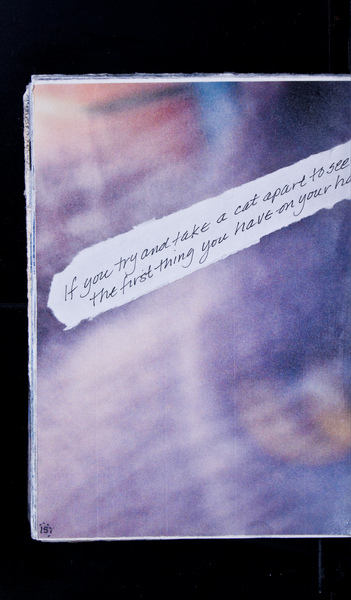 If you try and take a cat apart to see
the first thing you have on your